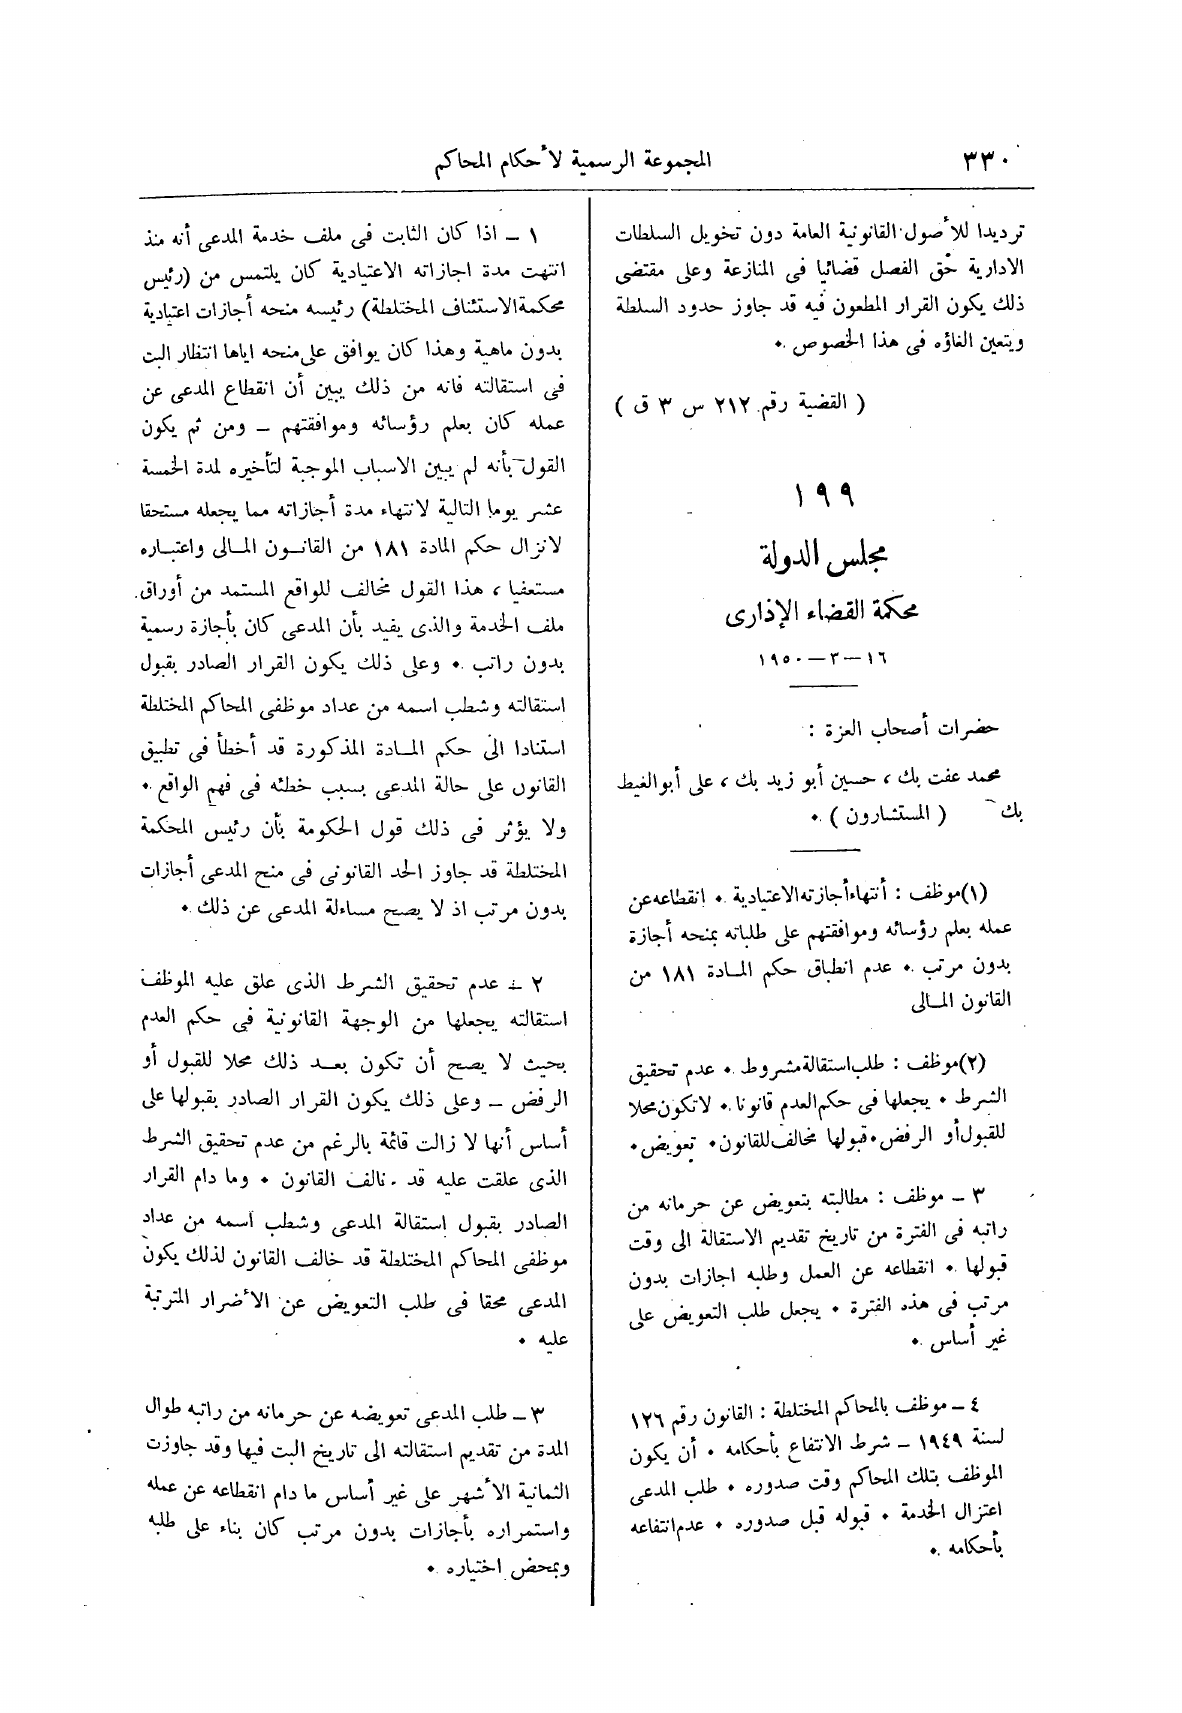 ٣٣٠
المجموعة الرسمية لأحكام المحاكم
ترديدا للأصول القانونية العامة دون تخويل السلطات
الادارية حق الفصل قضائيا فى المنازعة وعلى مقتضى
ذلك يكون القرار المطعون فيه قد جاوز حدود السلطة
ويتعين الغاؤه فى هذا الخصوص ٠
( القضية رقم ٢١٢ س ٣ ق )
١٩٩
مجلس الدولة
محكمة القضاء الإدارى
١٦-٣-١٩٥٠
حضرات أصحاب العزة :
محمد عفت بك ، حسين أبو زيد بك ، على أبو الغيط
بك ( المستشارون ) ٠
(١) موظف : أنتهاء أجازته الاعتيادية ٠ انقطاعه عن
عمله بعلم رؤسائه وموافقتهم على طلباته بمنحه أجازة
بدون مرتب ٠ عدم انطباق حكم المادة ١٨١ من
القانون المالى
(٢) موظف : طلب استقالة مشروط ٠ عدم تحقيق
الشرط ٠ يجعلها فى حكم العدم قانونا ٠ لا تكون محلا
للقبول أو الرفض ٠ قبولها مخالف للقانون ٠ تعويض ٠
٣ - موظف : مطالبته بتعويض عن حرمانه من
راتبه فى الفترة من تاريخ تقديم الاستقالة الى وقت
قبولها ٠ انقطاعه عن العمل وطلبه اجازات بدون
مرتب فى هذه الفترة ٠ يجعل طلب التعويض على
غير أساس ٠
٤ - موظف بالمحاكم المختلطة : القانون رقم ١٢٦
لسنة ١٩٤٩ - شرط الانتفاع بأحكامه ٠ أن يكون
الموظف بتلك المحاكم وقت صدوره ٠ طلب المدعى
اعتزال الخدمة ٠ قبوله قبل صدوره ٠ عدم انتفاعه
بأحكامه ٠
١ - اذا كان الثابت فى ملف خدمة المدعى أنه منذ
انتهت مدة اجازاته الاعتيادية كان يلتمس من (رئيس
محكمة الاستئناف المختلطة) رئيسه منحه أجازات اعتيادية
بدون ماهية وهذا كان يوافق على منحه اياها انتظار البت
فى استقالته فانه من ذلك يبين أن انقطاع المدعى عن
عمله كان بعلم رؤسائه وموافقتهم - ومن ثم يكون
القول بأنه لم يبين الاسباب الموجبة لتأخيره لمدة الخمسة
عشر يوما التالية لانتهاء مدة أجازاته مما يجعله مستحقا
لانزال حكم المادة ١٨١ من القانون المالى واعتباره
مستعفيا ، هذا القول مخالف للواقع المستمد من أوراق
ملف الخدمة والذى يفيد بأن المدعى كان بأجازة رسمية
بدون راتب ٠ وعلى ذلك يكون القرار الصادر بقبول
استقالته وشطب اسمه من عداد موظفى المحاكم المختلطة
استنادا الى حكم المادة المذكورة قد أخطأ فى تطبيق
القانون على حالة المدعى بسبب خطئه فى فهم الواقع ٠
ولا يؤثر فى ذلك قول الحكومة بأن رئيس المحكمة
المختلطة قد جاوز الحد القانونى فى منح المدعى أجازات
بدون مرتب اذ لا يصح مساءلة المدعى عن ذلك ٠
٢ - عدم تحقيق الشرط الذى علق عليه الموظف
استقالته يجعلها من الوجهة القانونية فى حكم العدم
بحيث لا يصح أن تكون بعد ذلك محلا للقبول أو
الرفض - وعلى ذلك يكون القرار الصادر بقبولها على
أساس أنها لا زالت قائمة بالرغم من عدم تحقيق الشرط
الذى علقت عليه قد خالف القانون ٠ وما دام القرار
الصادر بقبول استقالة المدعى وشطب اسمه من عداد
موظفى المحاكم المختلطة قد خالف القانون لذلك يكون
المدعى محقا فى طلب التعويض عن الأضرار المترتبة
عليه ٠
٣ - طلب المدعى تعويضه عن حرمانه من راتبه طوال
المدة من تقديم استقالته الى تاريخ البت فيها وقد جاوزت
الثمانية الأشهر على غير أساس ما دام انقطاعه عن عمله
واستمراره بأجازات بدون مرتب كان بناء على طلبه
وبمحض اختياره ٠